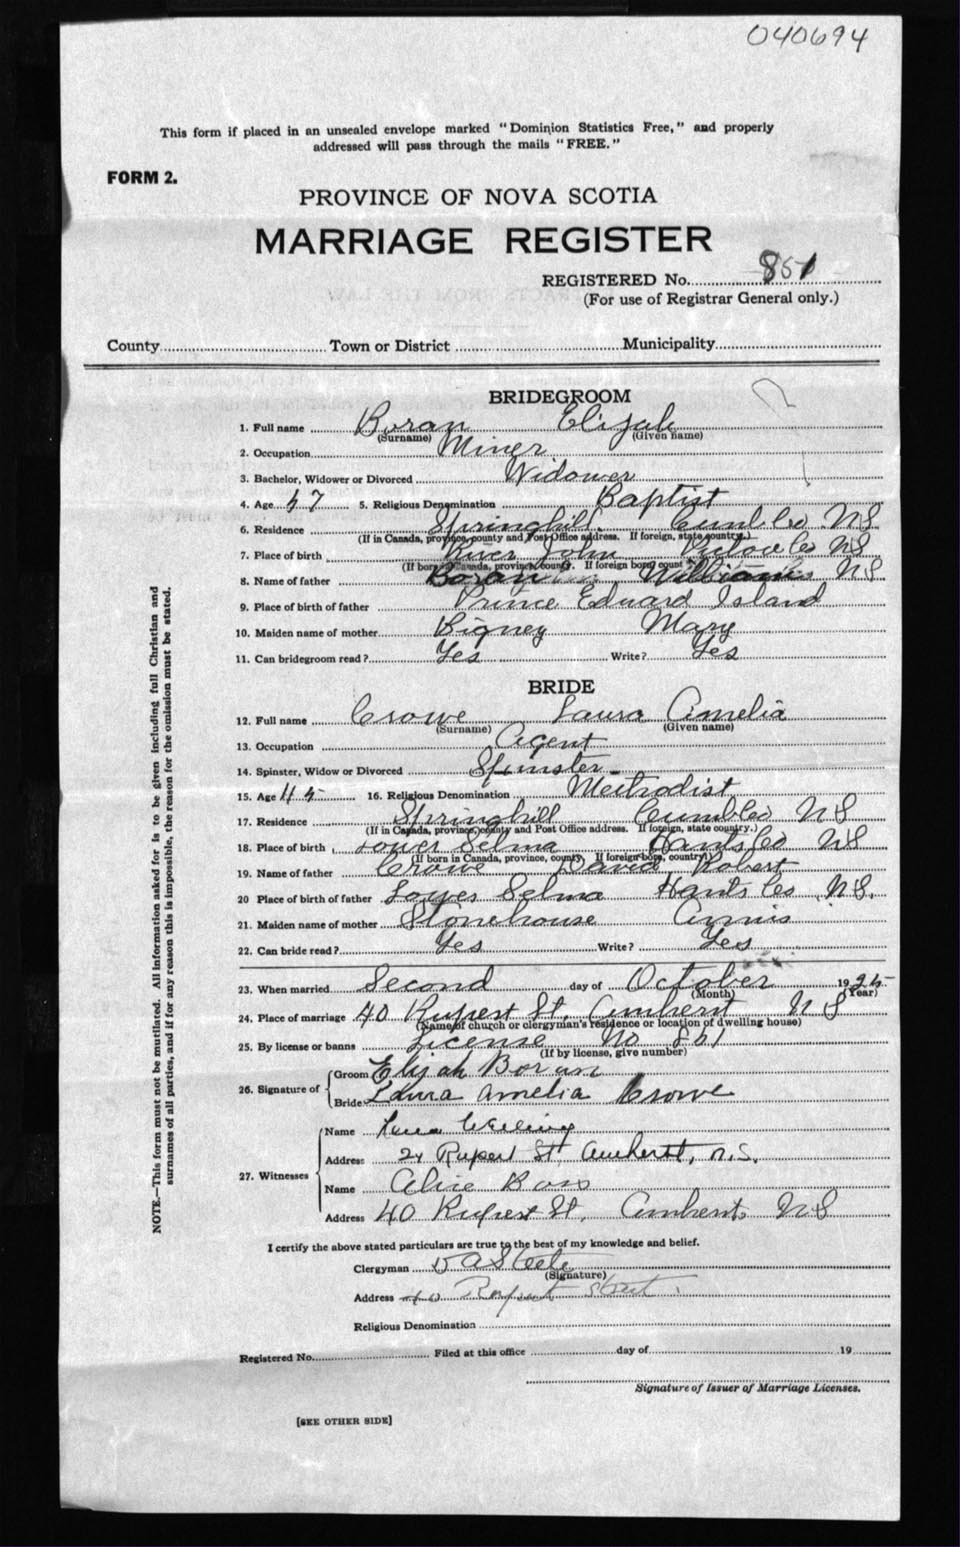 040694
This form if placed in an unsealed envelope marked "Dominion Statistics Free," and properly
addressed will pass through the mails "FREE."
FORM 2.
PROVINCE OF NOVA SCOTIA
MARRIAGE REGISTER
REGISTERED No. 851
(For use of Registrar General only.)
County Town or District Municipality
BRIDEGROOM
1. Full name Boran Elijah
(Surname) (Given name)
2. Occupation Miner
3. Bachelor, Widower or Divorced Widower
4. Age 57 5. Religious Denomination Baptist
6. Residence Springhill. Cumb Co NS
(If in Canada, province, county and Post Office address. If foreign, state country.)
7. Place of birth River John Pictou Co NS
8. Name of father Boran William NS
9. Place of birth of father Prince Edward Island
10. Maiden name of mother Bigney Mary
11. Can bridegroom read? Yes Write? Yes
BRIDE
12. Full name Crowe Laura Amelia
(Surname) (Given name)
13. Occupation Agent
14. Spinster, Widow or Divorced Spinster
15. Age 45 16. Religious Denomination Methodist
17. Residence Springhill Cumb Co NS
(If in Canada, province, county and Post Office address. If foreign, state country.)
18. Place of birth Lower Selma Hants Co NS
(If born in Canada, province, county, If foreign born, country)
19. Name of father Crowe David Robert
20 Place of birth of father Lower Selma Hants Co N.S.
21. Maiden name of mother Stonehouse Annis
22. Can bride read? Yes Write? Yes
23. When married Second day of October 1925
(Month) (Year)
24. Place of marriage 40 Rupert St, Amherst NS
(Name of church or clergyman's residence or location of dwelling house)
25. By license or banns License No 851
(If by license, give number)
26. Signature of
Groom Elijah Boran
Bride Laura Amelia Crowe
27. Witnesses
Name
Address 24 Rupert St, Amherst, N.S.
Name Alice Ross
Address 40 Rupert St, Amherst, NS
I certify the above stated particulars are true to the best of my knowledge and belief.
Clergyman D A Steele
(Signature)
Address 40 Rupert Street.
Religious Denomination
Registered No. Filed at this office day of 19
Signature of Issuer of Marriage Licenses.
[SEE OTHER SIDE]
NOTE.—This form must not be mutilated. All information asked for is to be given including full Christian and
surnames of all parties, and if for any reason this is impossible, the reason for the omission must be stated.